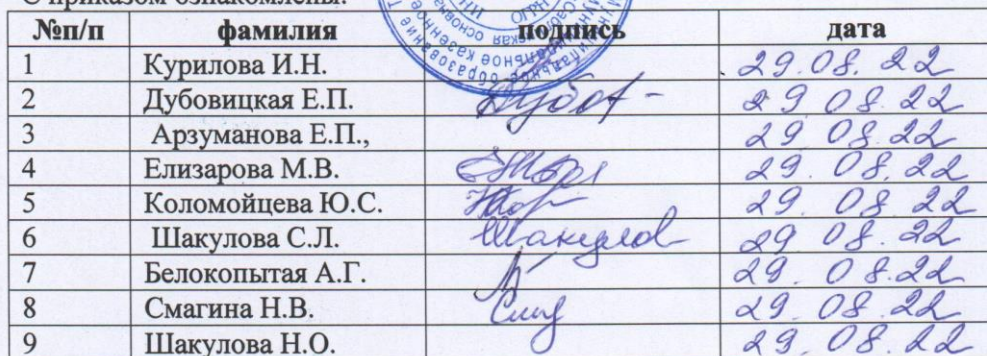 С приказом ознакомлены:
№п/п фамилия подпись дата
1 Курилова И.Н. 29.08.22
2 Дубовицкая Е.П. 29.08.22
3 Арзуманова Е.П., 29.08.22
4 Елизарова М.В. 29.08.22
5 Коломойцева Ю.С. 29.08.22
6 Шакулова С.Л. Шакулов 29.08.22
7 Белокопытая А.Г. 29.08.22
8 Смагина Н.В. 29.08.22
9 Шакулова Н.О. 29.08.22